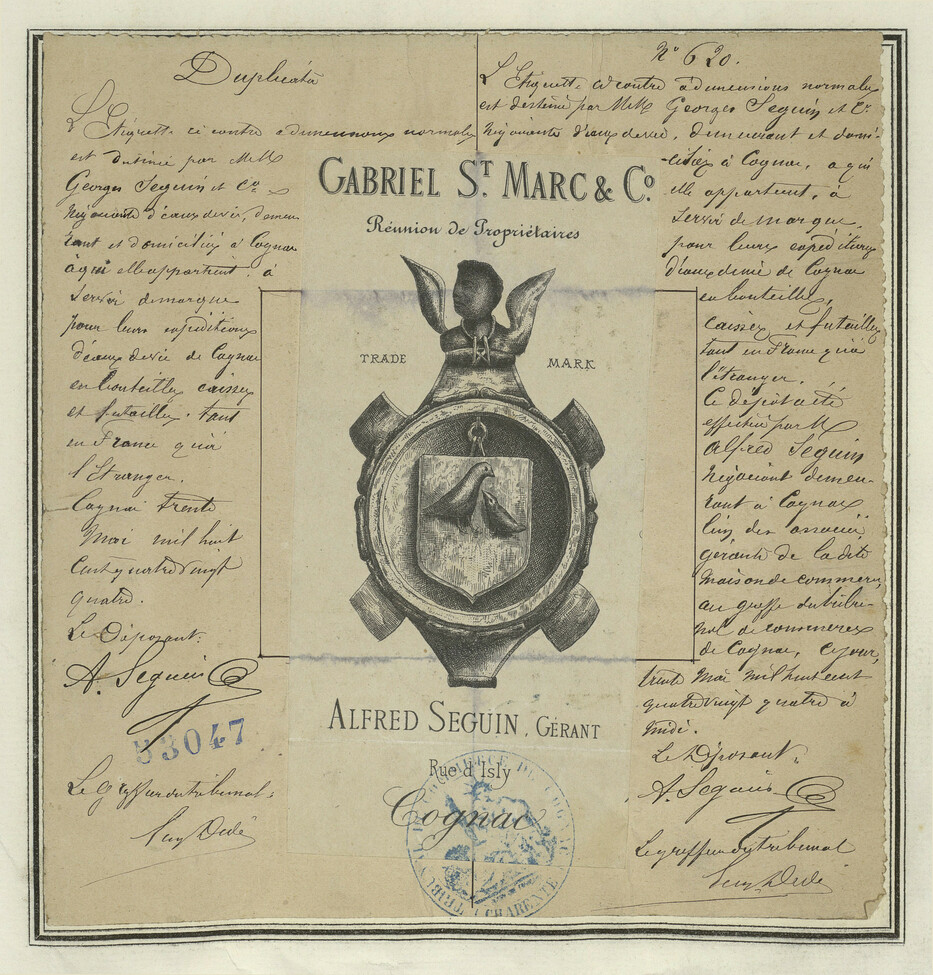 Duplicata
L'Etiquette ci contre a dimensions normales
est destinée par MM
Georges Seguin et Cie
Négociants d'eaux de vie, demeu
rant et domiciliés à Cognac
à qui elle appartient, à
servir de marque
pour leurs expéditions
d'eaux de vie de Cognac
en bouteilles, caisses
et futailles, tant
en France qu'à
l'Etranger.
Cognac trente
Mai mil huit
cent quatre vingt
quatre.
Le Déposant:
A. Seguin
53047
Le Greffier du tribunal:
GABRIEL ST. MARC & Co.
Réunion de Propriétaires
TRADE MARK
ALFRED SEGUIN, GÉRANT
Rue d'Isly
Cognac
TRIBUNAL DE COMMERCE DE COGNAC
CHARENTE
No 620.
L'Etiquette ci contre à dimensions normales
est destinée par MM Georges Seguin et Cie
Négociants d'eaux de vie, demeurant et domi-
-ciliés à Cognac, à qui
elle appartient, à
servir de marque
pour leurs expéditions
d'eaux de vie de Cognac
en bouteilles,
caisses et futailles
tant en France qu'à
l'étranger.
Ce dépôt a été
effectué par M
Alfred Seguin
Négociant demeu-
rant à Cognac
l'un des associés
gérants de la dite
maison de commerce,
au greffe du tribu-
nal de commerce
de Cognac, ce jour,
trente Mai mil huit cent
quatre vingt quatre à
midi.
Le Déposant,
A. Seguin
Le greffier du tribunal